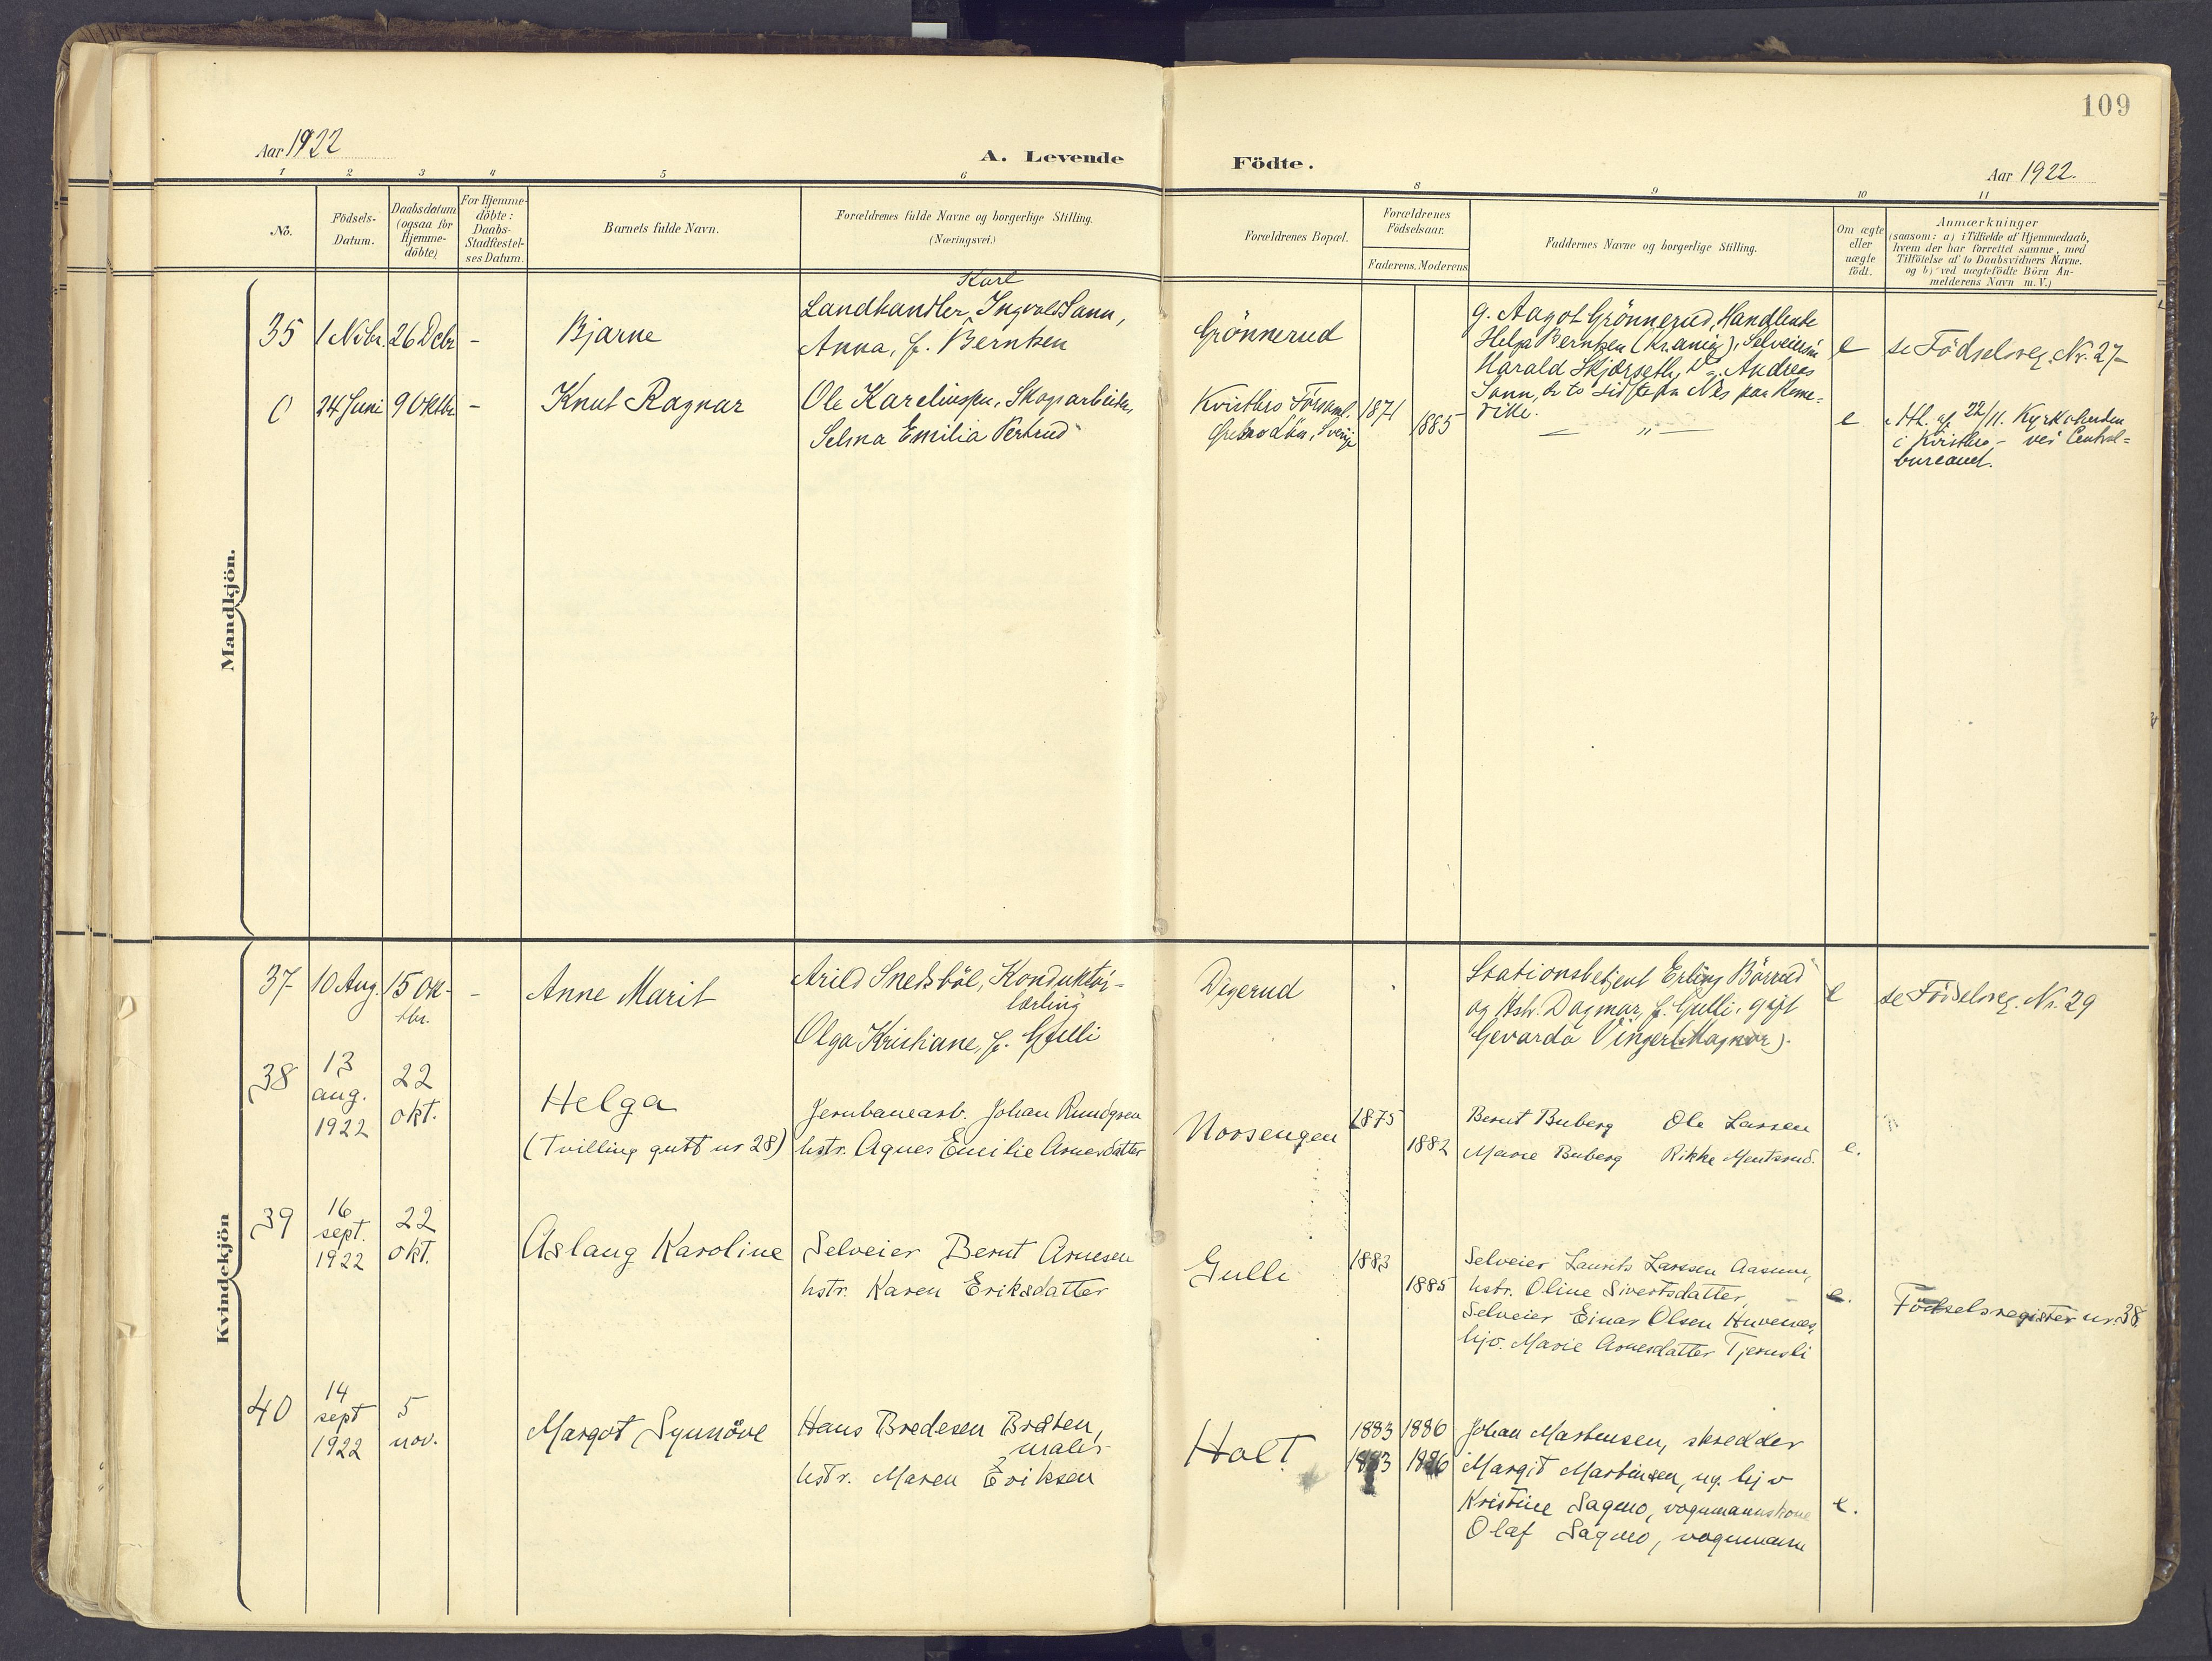 109
Aar 1922
A. Levende
Födte.
Aar 1922.
1 2 3 4 5 6 8 9 10 11
No.
Födsels-
Datum.
Daabsdatum
(ogsaa for
Hjemme-
döbte)
For Hjemme-
döbte:
Daabs-
Stadfæstel-
ses Datum.
Barnets fulde Navn.
Forældrenes fulde Navne og borgerlige Stilling.
(Næringsvei.)
Forældrenes Bopæl.
Forældrenes
Födselsaar.
Faderens. Moderens
Faddernes Navne og borgerlige Stilling.
Om ægte
eller
uægte
födt.
Anmærkninger
(saasom: a) i Tilfælde af Hjemmedaab,
hvem der har forrettet samme, med
Tilföielse af to Daabsvidners Navne.
og b) ved uægtefödte Börn An-
melderens Navn m. V.)
Mandkjön.
35
1 Nvbr.
26 Dcbr
-
Bjarne
Karl
Landhandler Ingvald Sann,
Anna, f. Berntsen
Grönnerud
g. Aagot Grönnerud, Handlende
Helga Berntsen (Kr.ania), Selveier
Harald Skjærseth, Andreas
Sann, de to sidste fra Nes paa Rome-
rike.
e
se Födselsreg. Nr. 27-
0
24 Juni
9 Oktbr
-
Knut Ragnar
Ole Kareliussen, Skogsarbeider,
Selma Emilia Pertrud
Kvistbro Församl.
Örebro Län, Sverige
1871
1885
— " —
e
Att. af 22/11. Kyrkoherden
i Kvistbro - vei Central-
bureauet.
Kvindekjön
37
10 Aug.
15 Ok-
tbr.
-
Anne Marit
Arild Snedsböl, Konduktör-
lærling
Olga Kristiane, f. Gulli
Digerud
Stationsbetjent Erling Börrud
og Hstr. Dagmar, f. Gulli, gift
Gevarda Vinger (Magnor).
e
se Födselsreg. Nr. 29
38
13
aug.
1922
22
okt.
Helga
(Tvilling gutt nr 28)
Jernbanearb. Johan Rundgren
hstr. Agnes Emilie Arnesdatter
Noosengen
1875
1882
Bernt Buberg Ole Larsen
Marie Buberg Rikke Mentsrud.
e.
39
16
sept.
1922
22
okt.
Aslaug Karoline
Selveier Bernt Arnesen
hstr. Karen Eriksdatter
Gulli
1883
1885
Selveier Laurits Larssen Aasum,
hstr. Oline Sivertsdatter,
Selveier Einar Olsen Huvenes,
hjv. Marie Arnesdatter Tjernsli
e.
Födselsregister nr. 38.
40
14
sept
1922
5
nov.
Margot Synnöve
Hans Bredesen Bråten,
maler
hstr. Maren Eriksen
Holt
1883 1886
1883 1886
Johan Martinsen, skredder
Margit Martinsen, ug. hjv
Kristine Sagmo, vognmannskone
Olaf Sagmo, vognmann
e.